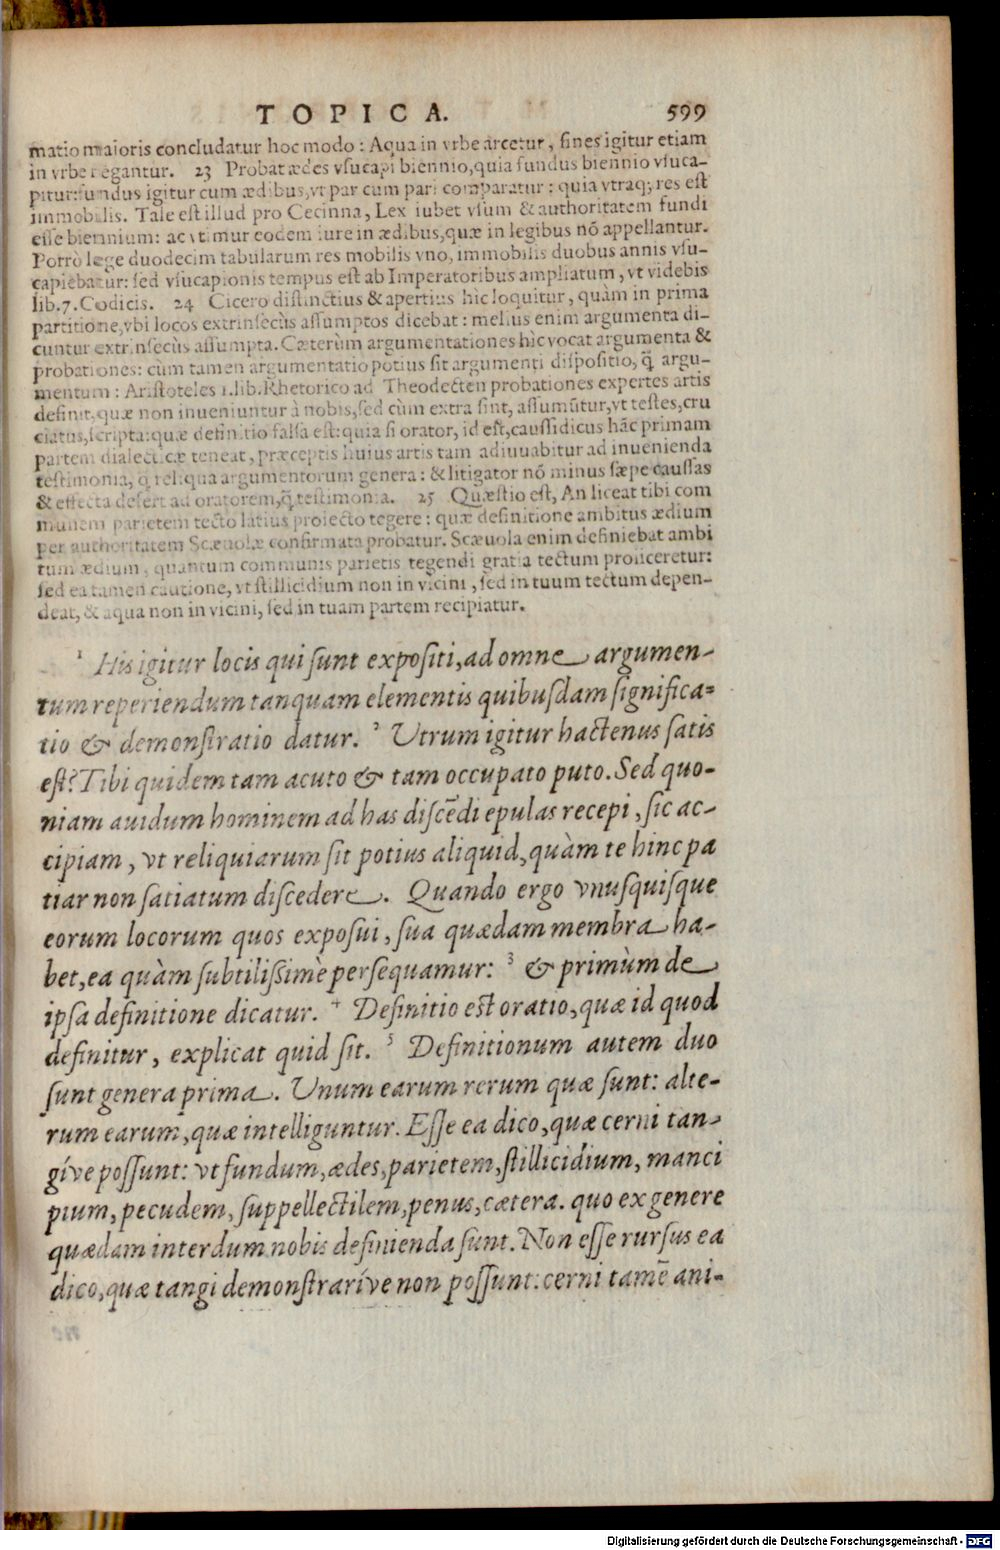 TOPICA. 599
matio maioris concludatur hoc modo : Aqua in vrbe arcetur, fines igitur etiam
in vrbe regantur. 23 Probat ædes vsucapi biennio, quia fundus biennio vsuca-
pitur: fundus igitur cum ædibus, vt par cum pari comparatur : quia vtraq; res est
immobilis. Tale est illud pro Cecinna, Lex iubet vsum & authoritatem fundi
esse biennium: ac vtimur eodem iure in ædibus, quæ in legibus nō appellantur.
Porrò lege duodecim tabularum res mobilis vno, immobilis duobus annis vsu-
capiebatur: sed vsucapionis tempus est ab Imperatoribus ampliatum, vt videbis
lib. 7. Codicis. 24 Cicero distinctius & apertius hic loquitur, quàm in prima
partitione, vbi locos extrinsecùs assumptos dicebat : melius enim argumenta di-
cuntur extrinsecùs assumpta. Cæterùm argumentationes hìc vocat argumenta &
probationes: cùm tamen argumentatio potius sit argumenti dispositio, q̃ argu-
mentum : Aristoteles 1. lib. Rhetorico ad Theodecten probationes expertes artis
definit, quæ non inueniuntur à nobis, sed cùm extra sint, assumūtur, vt testes, cru
ciatus, scripta: quæ definitio falsa est: quia si orator, id est, caussidicus hāc primam
partem dialecticæ teneat, præceptis huius artis tam adiuuabitur ad inuenienda
testimonia, q̃ reliqua argumentorum genera : & litigator nō minus sæpe caussas
& effecta defert ad oratorem, q̃ testimonia. 25 Quæstio est, An liceat tibi com
munem parietem tecto latius proiecto tegere : quæ definitione ambitus ædium
per authoritatem Scæuolæ confirmata probatur. Scæuola enim definiebat ambi
tum ædium, quantum communis parietis tegendi gratia tectum proiiceretur:
sed ea tamen cautione, vt stillicidium non in vicini, sed in tuum tectum depen-
deat, & aqua non in vicini, sed in tuam partem recipiatur.
1 His igitur locis qui sunt expositi, ad omne argumen-
tum reperiendum tanquam elementis quibusdam significa-
tio & demonstratio datur. 2 Utrum igitur hactenus satis
est? Tibi quidem tam acuto & tam occupato puto. Sed quo-
niam auidum hominem ad has discēdi epulas recepi, sic ac-
cipiam, vt reliquiarum sit potius aliquid, quàm te hinc pa
tiar non satiatum discedere. Quando ergo vnusquisque
eorum locorum quos exposui, sua quædam membra ha-
bet, ea quàm subtilissimè persequamur: 3 & primùm de
ipsa definitione dicatur. 4 Definitio est oratio, quæ id quod
definitur, explicat quid sit. 5 Definitionum autem duo
sunt genera prima. Unum earum rerum quæ sunt: alte-
rum earum, quæ intelliguntur. Esse ea dico, quæ cerni tan-
gíve possunt: vt fundum, ædes, parietem, stillicidium, manci
pium, pecudem, suppellectilem, penus, cætera. quo ex genere
quædam interdum nobis definienda sunt. Non esse rursus ea
dico, quæ tangi demonstraríve non possunt: cerni tamē ani-
Digitalisierung gefördert durch die Deutsche Forschungsgemeinschaft - DFG